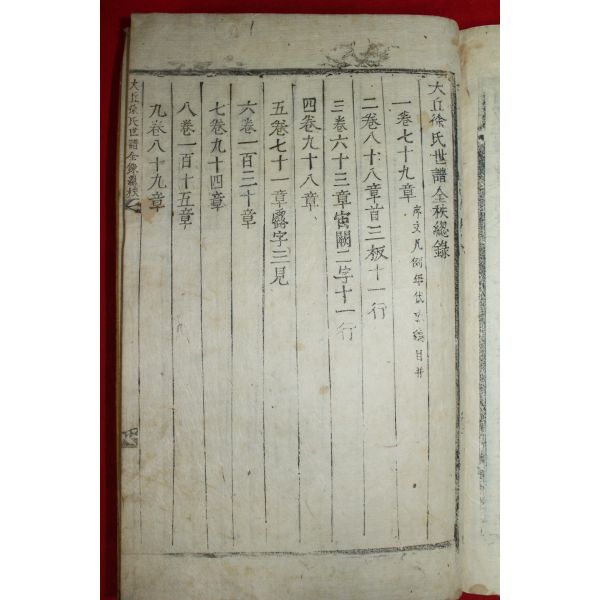 大丘徐氏世譜全秩總錄
一卷七十九章 序文凡例年代 目并
二卷八十八章首三板十一行
三卷六十三章 闕二字十一行
四卷九十八章
五卷七十一章 字三見
六卷一百二十章
七卷九十四章
八卷一百十五章
九卷八十九章
大丘徐氏世譜全錄